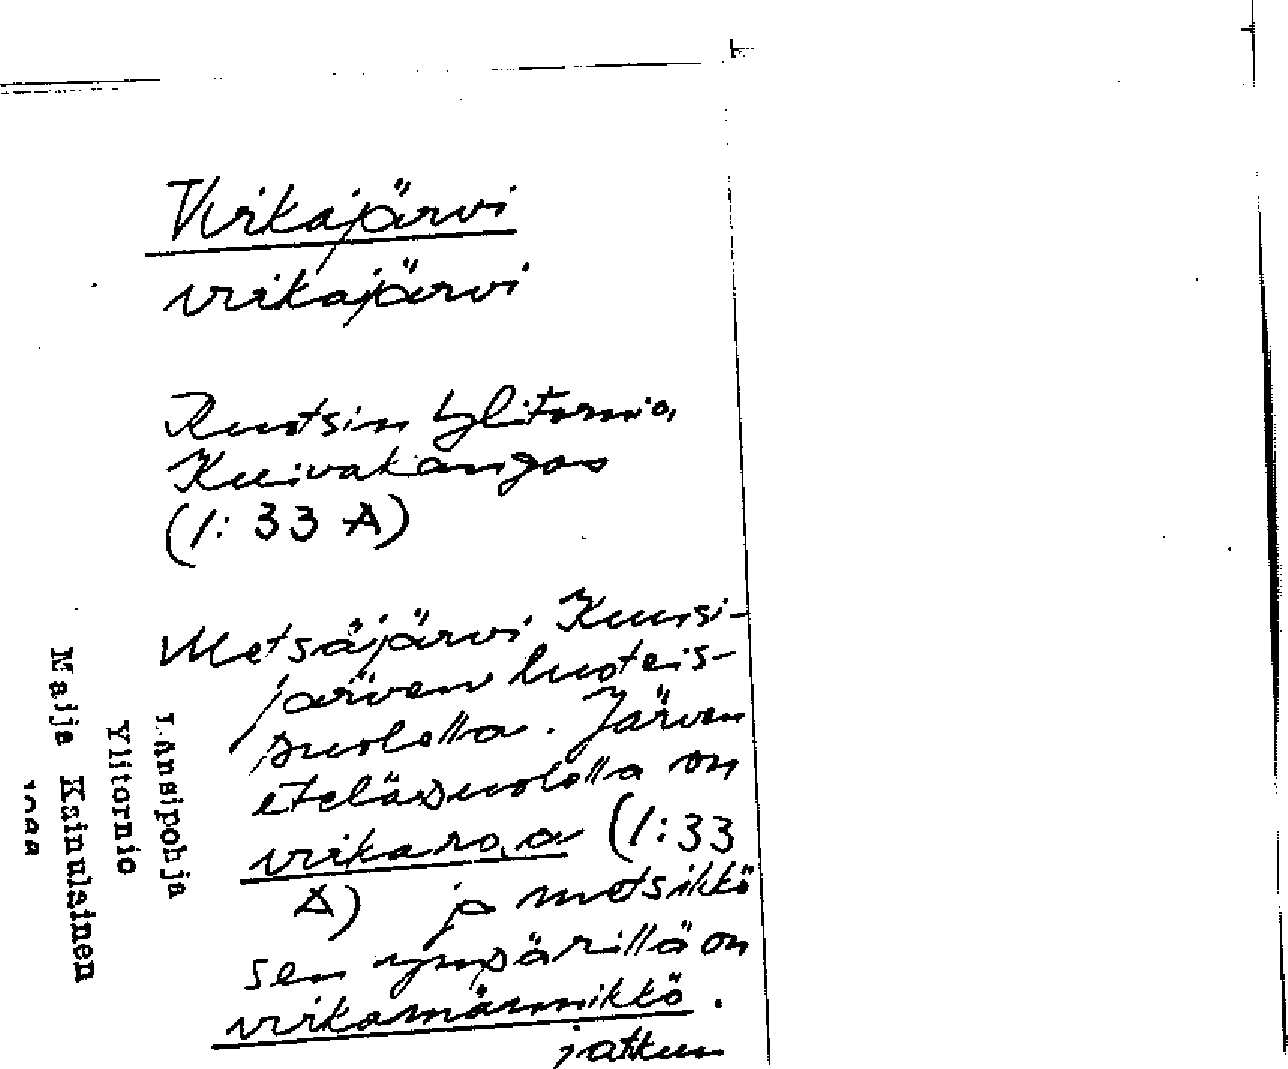 Virikajärvi
virikajärvi
Ruotsin Ylitornio,
Kuivakangas
(1:33 A)
Metsäjärvi Kuusi-
järven luoteis-
puolella. Järven
eteläpuolella on
virikarova (1:33
A) ja metsikkö
sen ympärillä on
virikamännikkö.
jatkuu
Länsipohja
Ylitornio
Maija Kainulainen